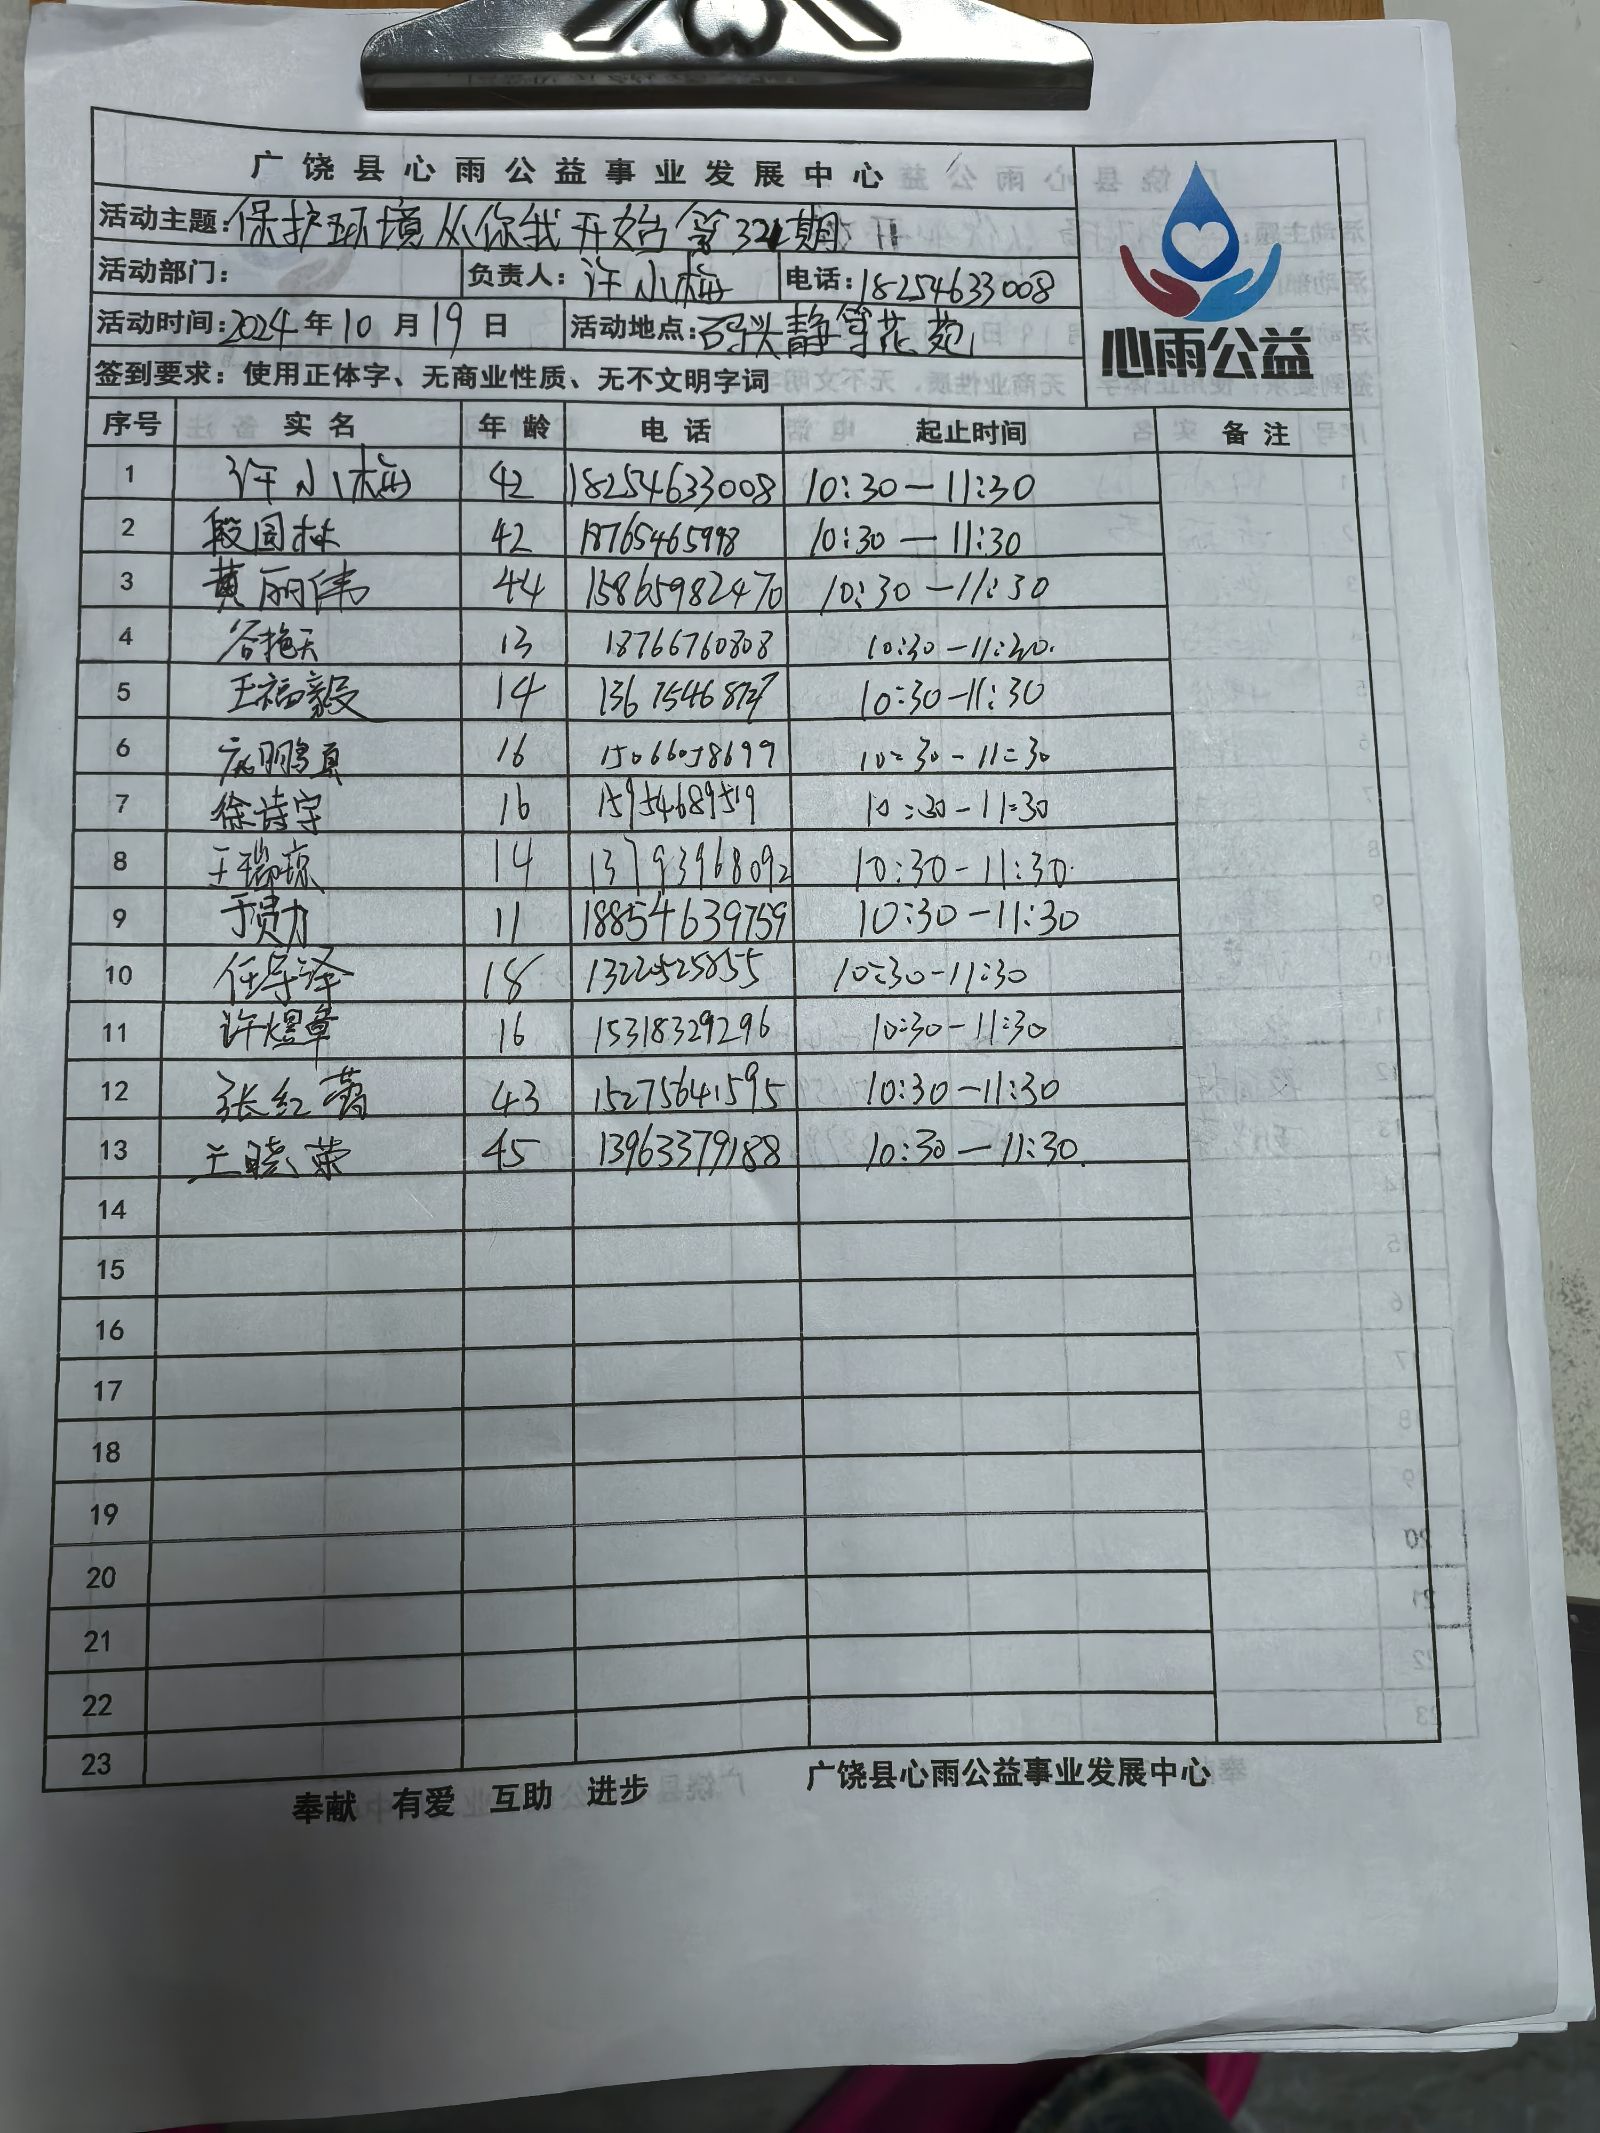 广饶县心雨公益事业发展中心
活动主题：保护环境从你我开始第321期
活动部门： 负责人：许小梅 电话：18254633008
活动时间：2024年10月19日 活动地点：码头静等花苑
心雨公益
签到要求：使用正体字、无商业性质、无不文明字词
序号 实名 年龄 电话 起止时间 备注
1 许小梅 42 18254633008 10:30—11:30
2 段园林 42 18765465998 10:30—11:30
3 黄丽伟 44 15865982470 10:30—11:30
4 谷艳天 13 18766760808 10:30—11:30.
5 王福毅 14 10:30-11:30
6 16 15066058699 10:30-11:30
7 徐诗宇 16 15954689519 10:30-11:30
8 王瑞琼 14 13793968092 10:30-11:30.
9 于贯力 11 18854639759 10:30-11:30
10 任导泽 18 13220525855 10:30-11:30
11 许煜章 16 15318329296 10:30-11:30
12 张红 43 15275641595 10:30—11:30
13 王晓荣 45 13963379188 10:30—11:30.
14
15
16
17
18
19
20
21
22
23
奉献 有爱 互助 进步 广饶县心雨公益事业发展中心